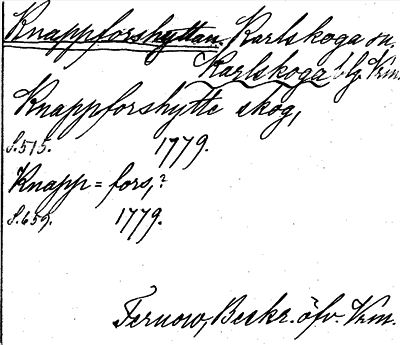 Knappforshyttan. Karlskoga sn.
Karlskoga bg. Vrm.
Knappforshytte skog,
S. 515. 1779.
Knapp = fors,?
S. 659. 1779.
Fernow, Beskr. öfv. Vrm.